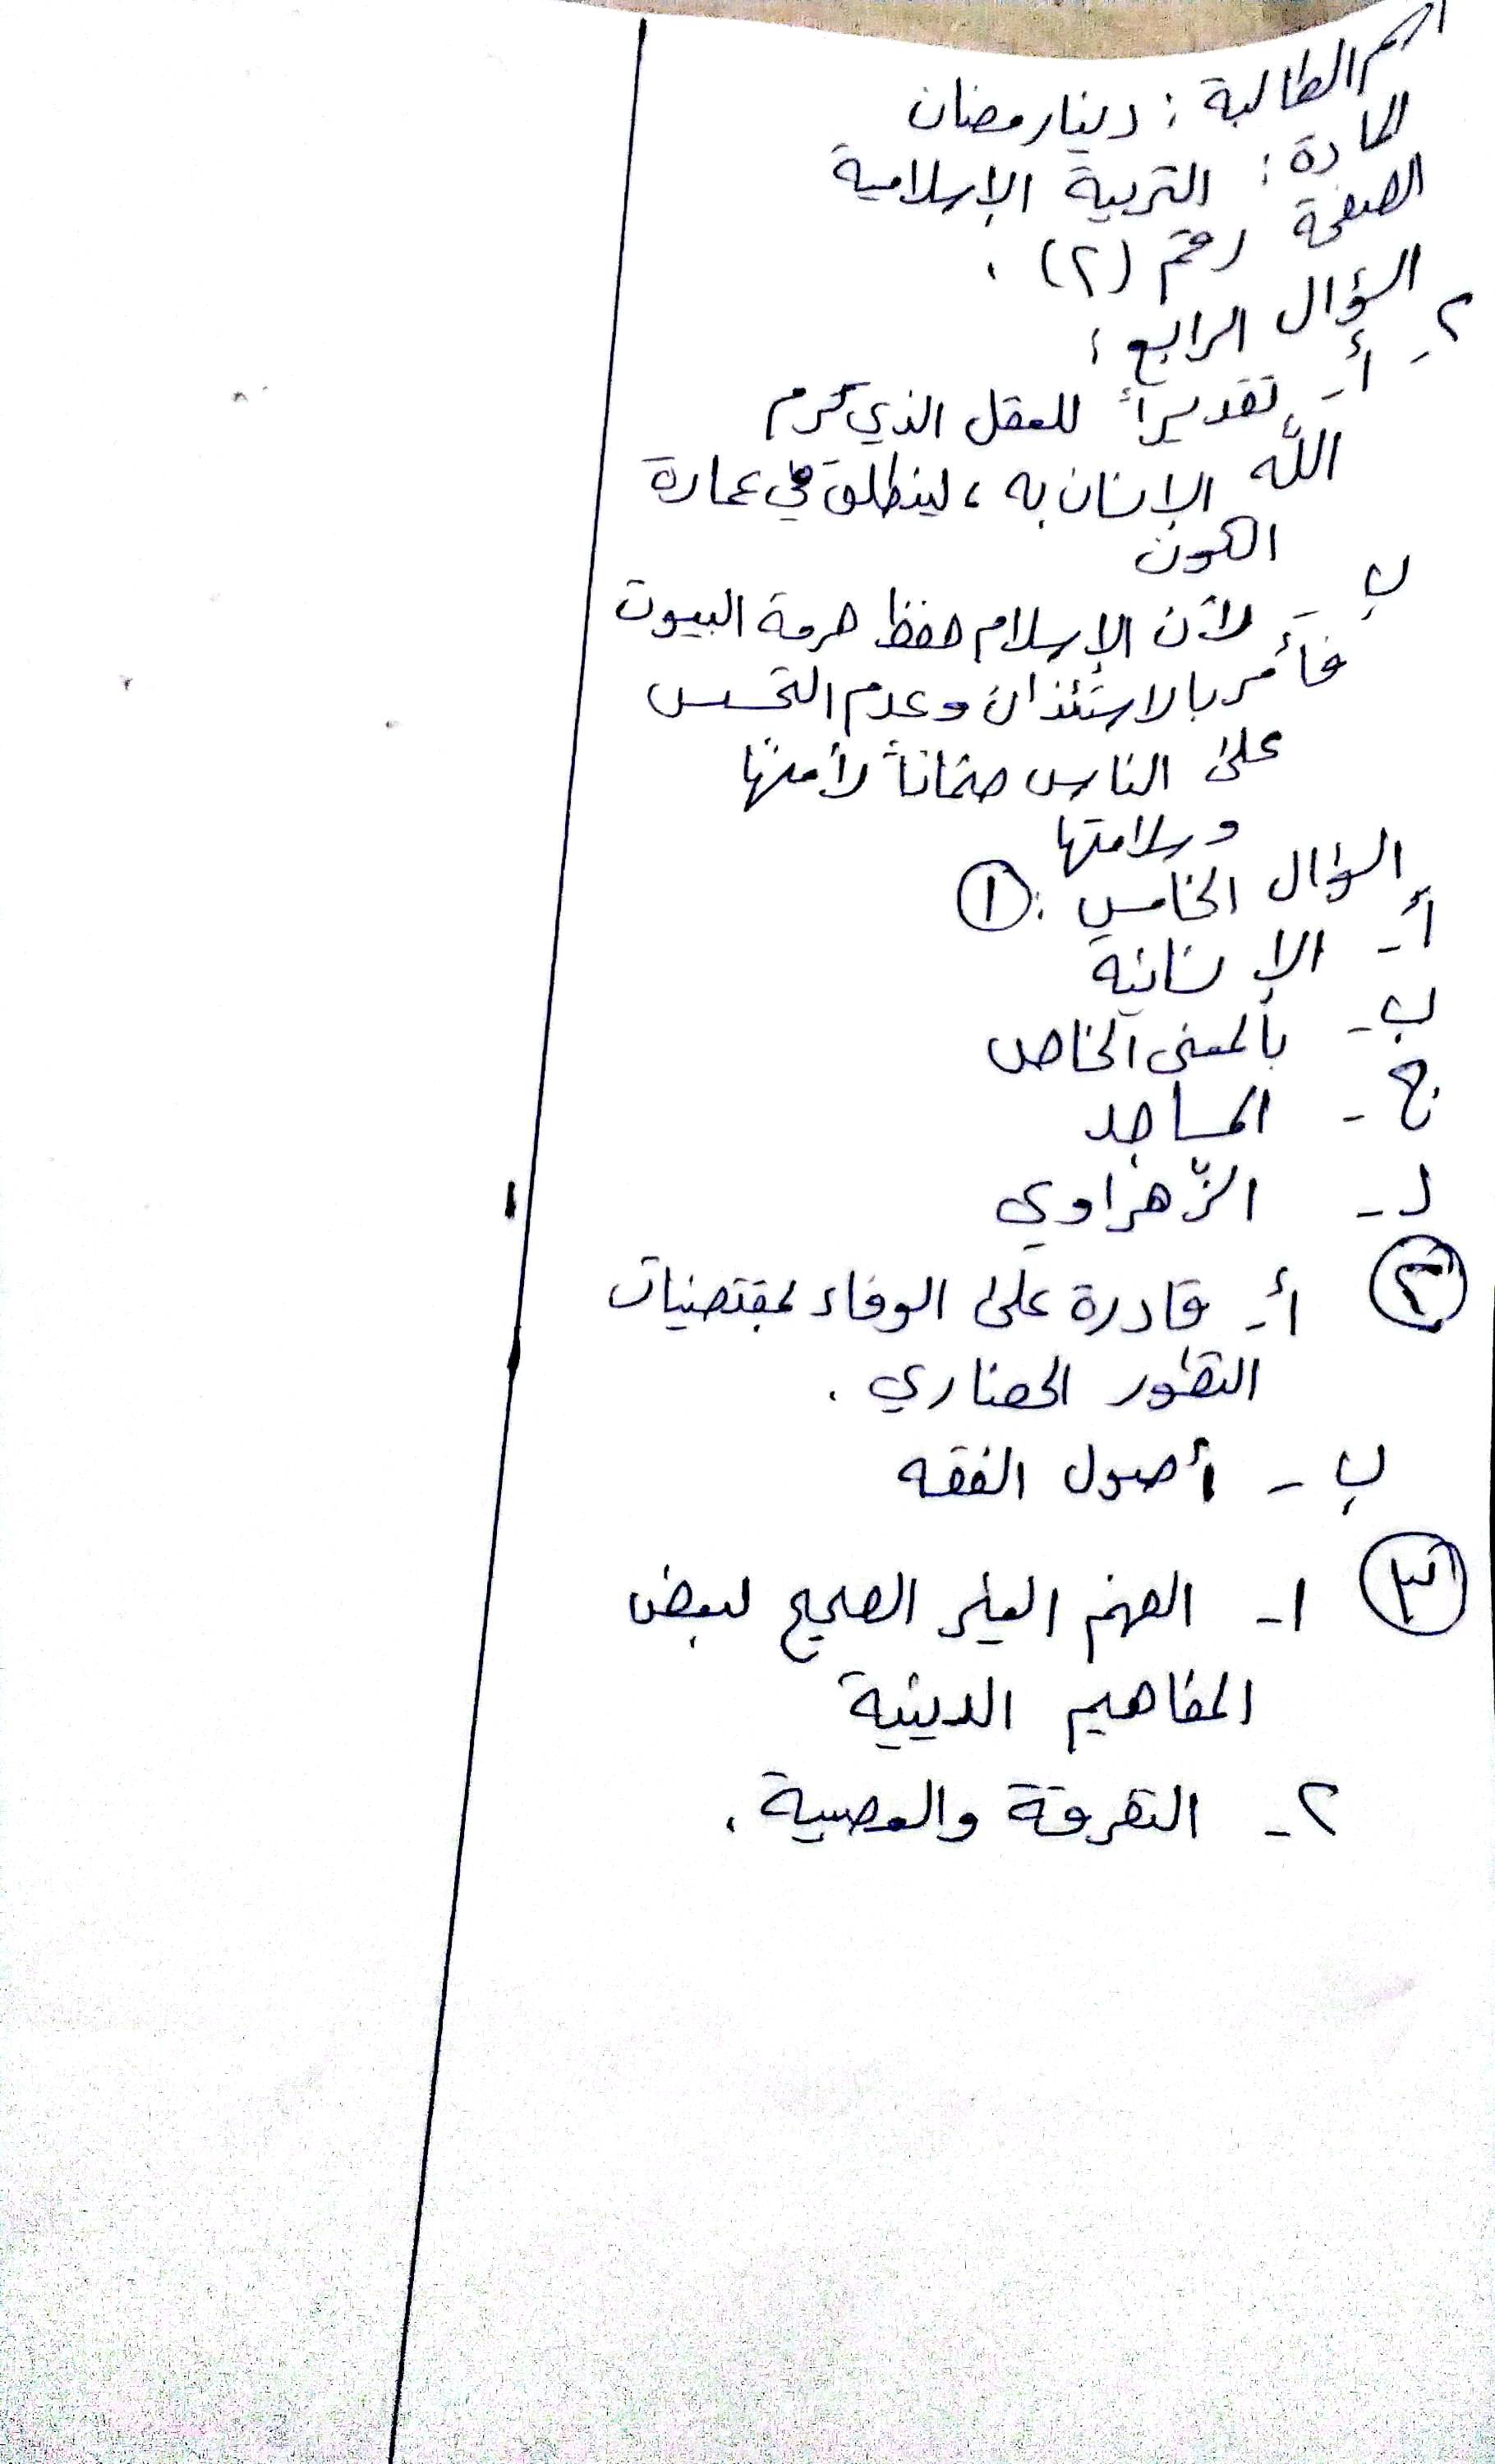 اسم الطالبة : دينا رمضان
المادة : التربية الإسلامية
الصفحة رقم (٢) .
السؤال الرابع :
٢- أ- تقديراً للعقل الذي كرم
الله الإنسان به ، لينطلق في عمارة
الكون
ب- لأن الإسلام حفظ حرمة البيوت
فأمر بالاستئذان وعدم التجسس
على الناس ضماناً لأمنها
وسلامتها
السؤال الخامس : ①
أ- الإنسانية
ب- بالمعنى الخاص
ج- المساجد
د- الزّهراوي
② أ- قادرة على الوفاء بمقتضيات
التطور الحضاري .
ب- أصول الفقه
③ ١- الفهم الغير الصحيح لبعض
المفاهيم الدينية
٢- التفرقة والعصبية .